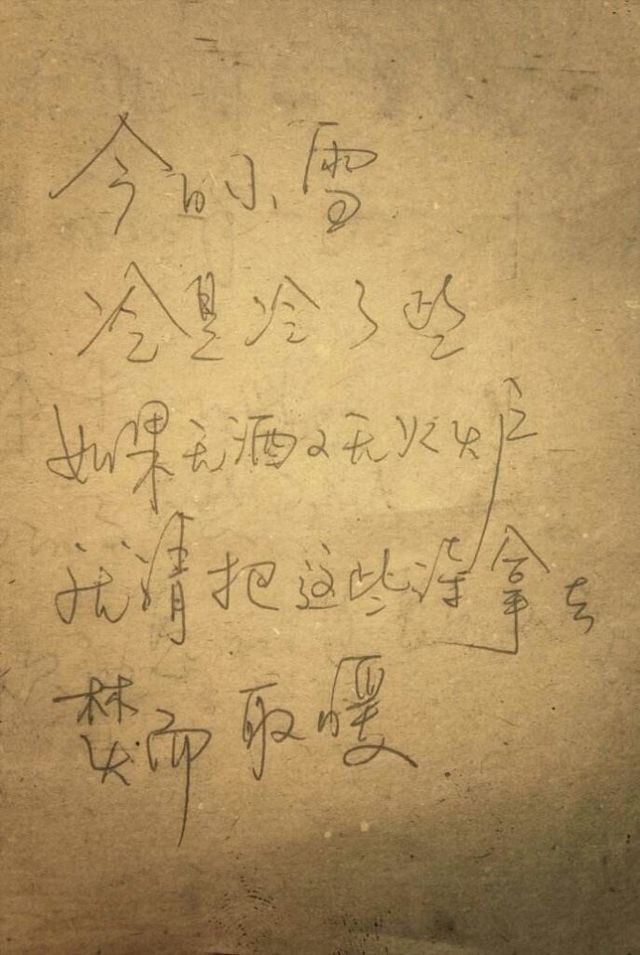 今日小雪
冷是冷了些
如果无酒又无火炉
就请把这些诗拿去
焚而取暖